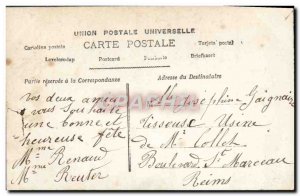 UNION POSTALE UNIVERSELLE
CARTE POSTALE
Cartolina postale
Tarjeta postal
Levelezőlap
Postcard
Briefkaart
Partie réservée à la Correspondance
Adresse du Destinataire
vos deux amies
vous souhaite
une bonne et
heureuse fête
Mme Renaud
Mme Reuter
Mlle Joséphine Gaignair
Tisseuse Usine
de Mr Collet
Boulevard St Marceau
Reims